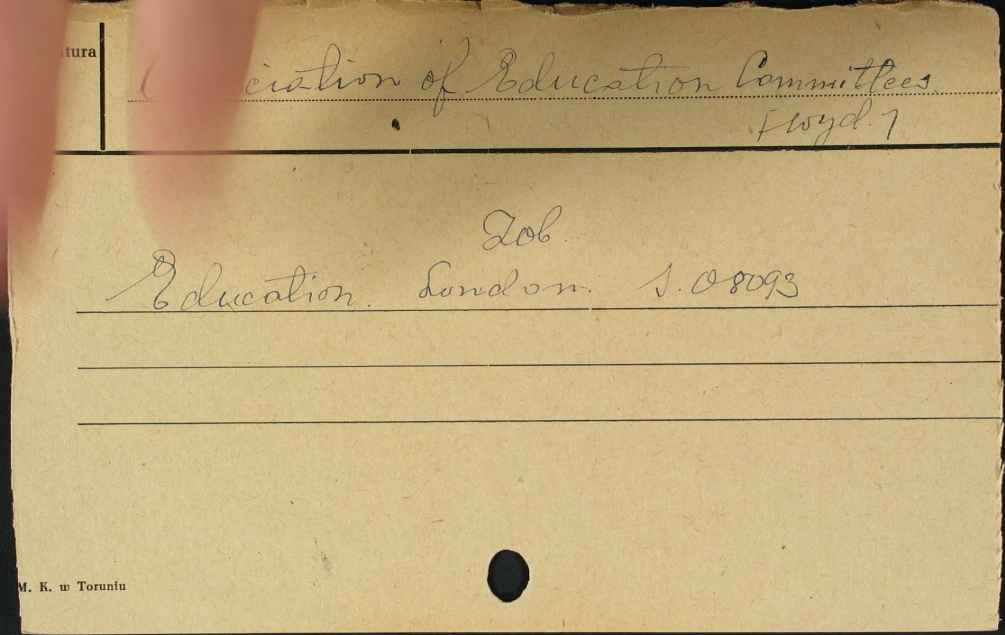 tura
ciation of Education Committees.
Zob.
Education. London. S. 08093
M. K. w Toruniu